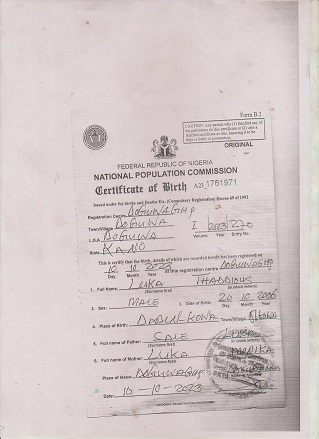 Form B 1
CAUTION: Any person who (1) falsified any of the particulars on this certificate or (2) uses a falsified certificate as true, knowing it to be
ORIGINAL
FEDERAL REPUBLIC OF NIGERIA
NATIONAL POPULATION COMMISSION
Certificate of Birth A23 1761971
Issued under the Births and Deaths Etc. (Compulsory Registration) Decree 69 of 1992
Registration Centre DOGUWAGHP
Town/Village DOGUWA
L.G.A DOGUWA I 2023 270
State KANO Volume Year Entry No.
This is certify that the birth, details of which are recorded herein has been registered on
10 10 2023 at this registration centre DOGUWAGHP
Day Month Year
1. Full Name: LUKA THADDIOUS
(Surname first) (in block letters)
2. Sex: MALE 3. Date of Birth: 20 10 2006
Day Month Year
4. Place of Birth: DADIN KOWA
Town/Village
5. Full name of Father: SALE LUKA
(Surname first)
6. Full name of Mother: LUKA MONIKA
(Surname first)
Place of Issue: DOGUWAGHP
Date: 10-10-2023